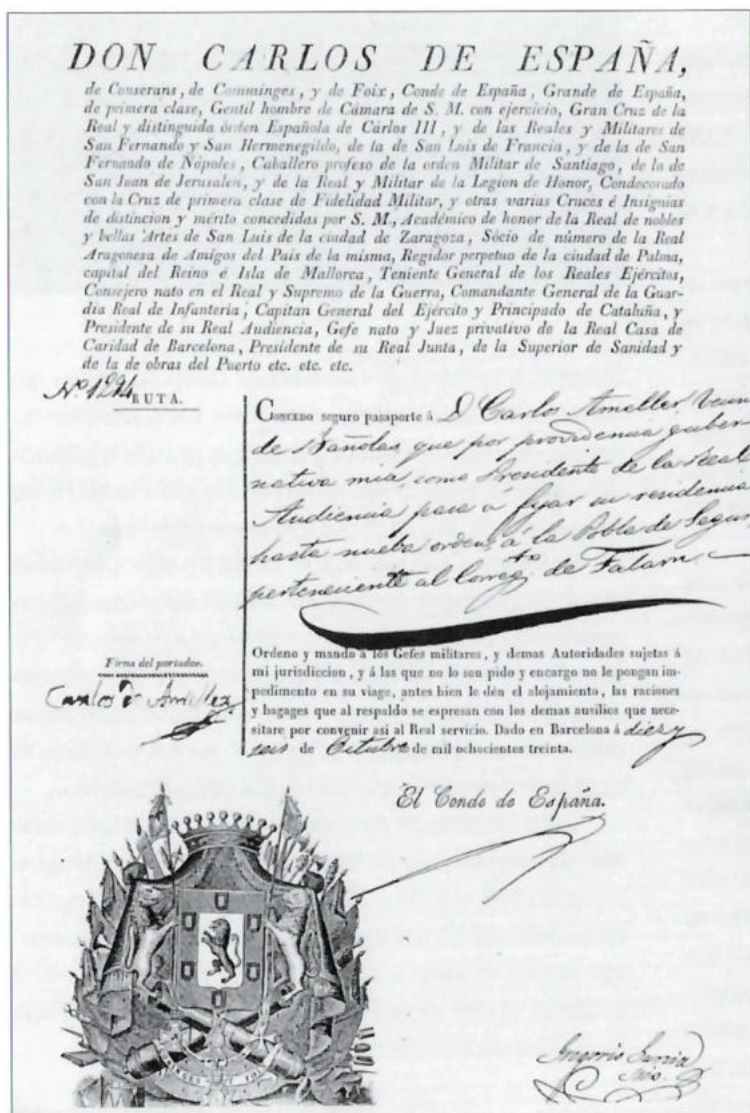 DON CARLOS DE ESPAÑA,
de Couserans, de Comminges, y de Foix, Conde de España, Grande de España,
de primera clase, Gentil hombre de Cámara de S. M. con ejercicio, Gran Cruz de la
Real y distinguida órden Española de Cárlos III, y de las Reales y Militares de
San Fernando y San Hermenegildo, de la de San Luis de Francia, y de la de San
Fernando de Nápoles, Caballero profeso de la orden Militar de Santiago, de la de
San Juan de Jerusalen, y de la Real y Militar de la Legion de Honor, Condecorado
con la Cruz de primera clase de Fidelidad Militar, y otras varias Cruces é Insignias
de distincion y mérito concedidas por S. M., Académico de honor de la Real de nobles
y bellas Artes de San Luis de la ciudad de Zaragoza, Sócio de número de la Real
Aragonesa de Amigos del País de la misma, Regidor perpetuo de la ciudad de Palma,
capital del Reino é Isla de Mallorca, Teniente General de los Reales Ejércitos,
Consejero nato en el Real y Supremo de la Guerra, Comandante General de la Guar-
dia Real de Infantería, Capitan General del Ejército y Principado de Cataluña, y
Presidente de su Real Audiencia, Gefe nato y Juez privativo de la Real Casa de
Caridad de Barcelona, Presidente de su Real Junta, de la Superior de Sanidad y
de la de obras del Puerto etc. etc. etc.
Nº 1294
RUTA.
Concedo seguro pasaporte á D Carlos Ameller
de Bañolas que por providencia guber
nativa mia como Presidente de la Real
Audiencia pasa a fijar su residencia
hasta nueba orden á la Pobla de Segur
perteneciente al Correg.to de Talarn
Firma del portador.
Carlos de Ameller
Ordeno y mando á los Gefes militares, y demas Autoridades sujetas á
mi jurisdiccion, y á las que no lo son pido y encargo no le pongan im-
pedimento en su viage, antes bien le dén el alojamiento, las raciones
y bagages que al respaldo se espresan con los demas ausilios que nece-
sitare por convenir asi al Real servicio. Dado en Barcelona á diez y
seis de Octubre de mil ochocientos treinta.
El Conde de España.